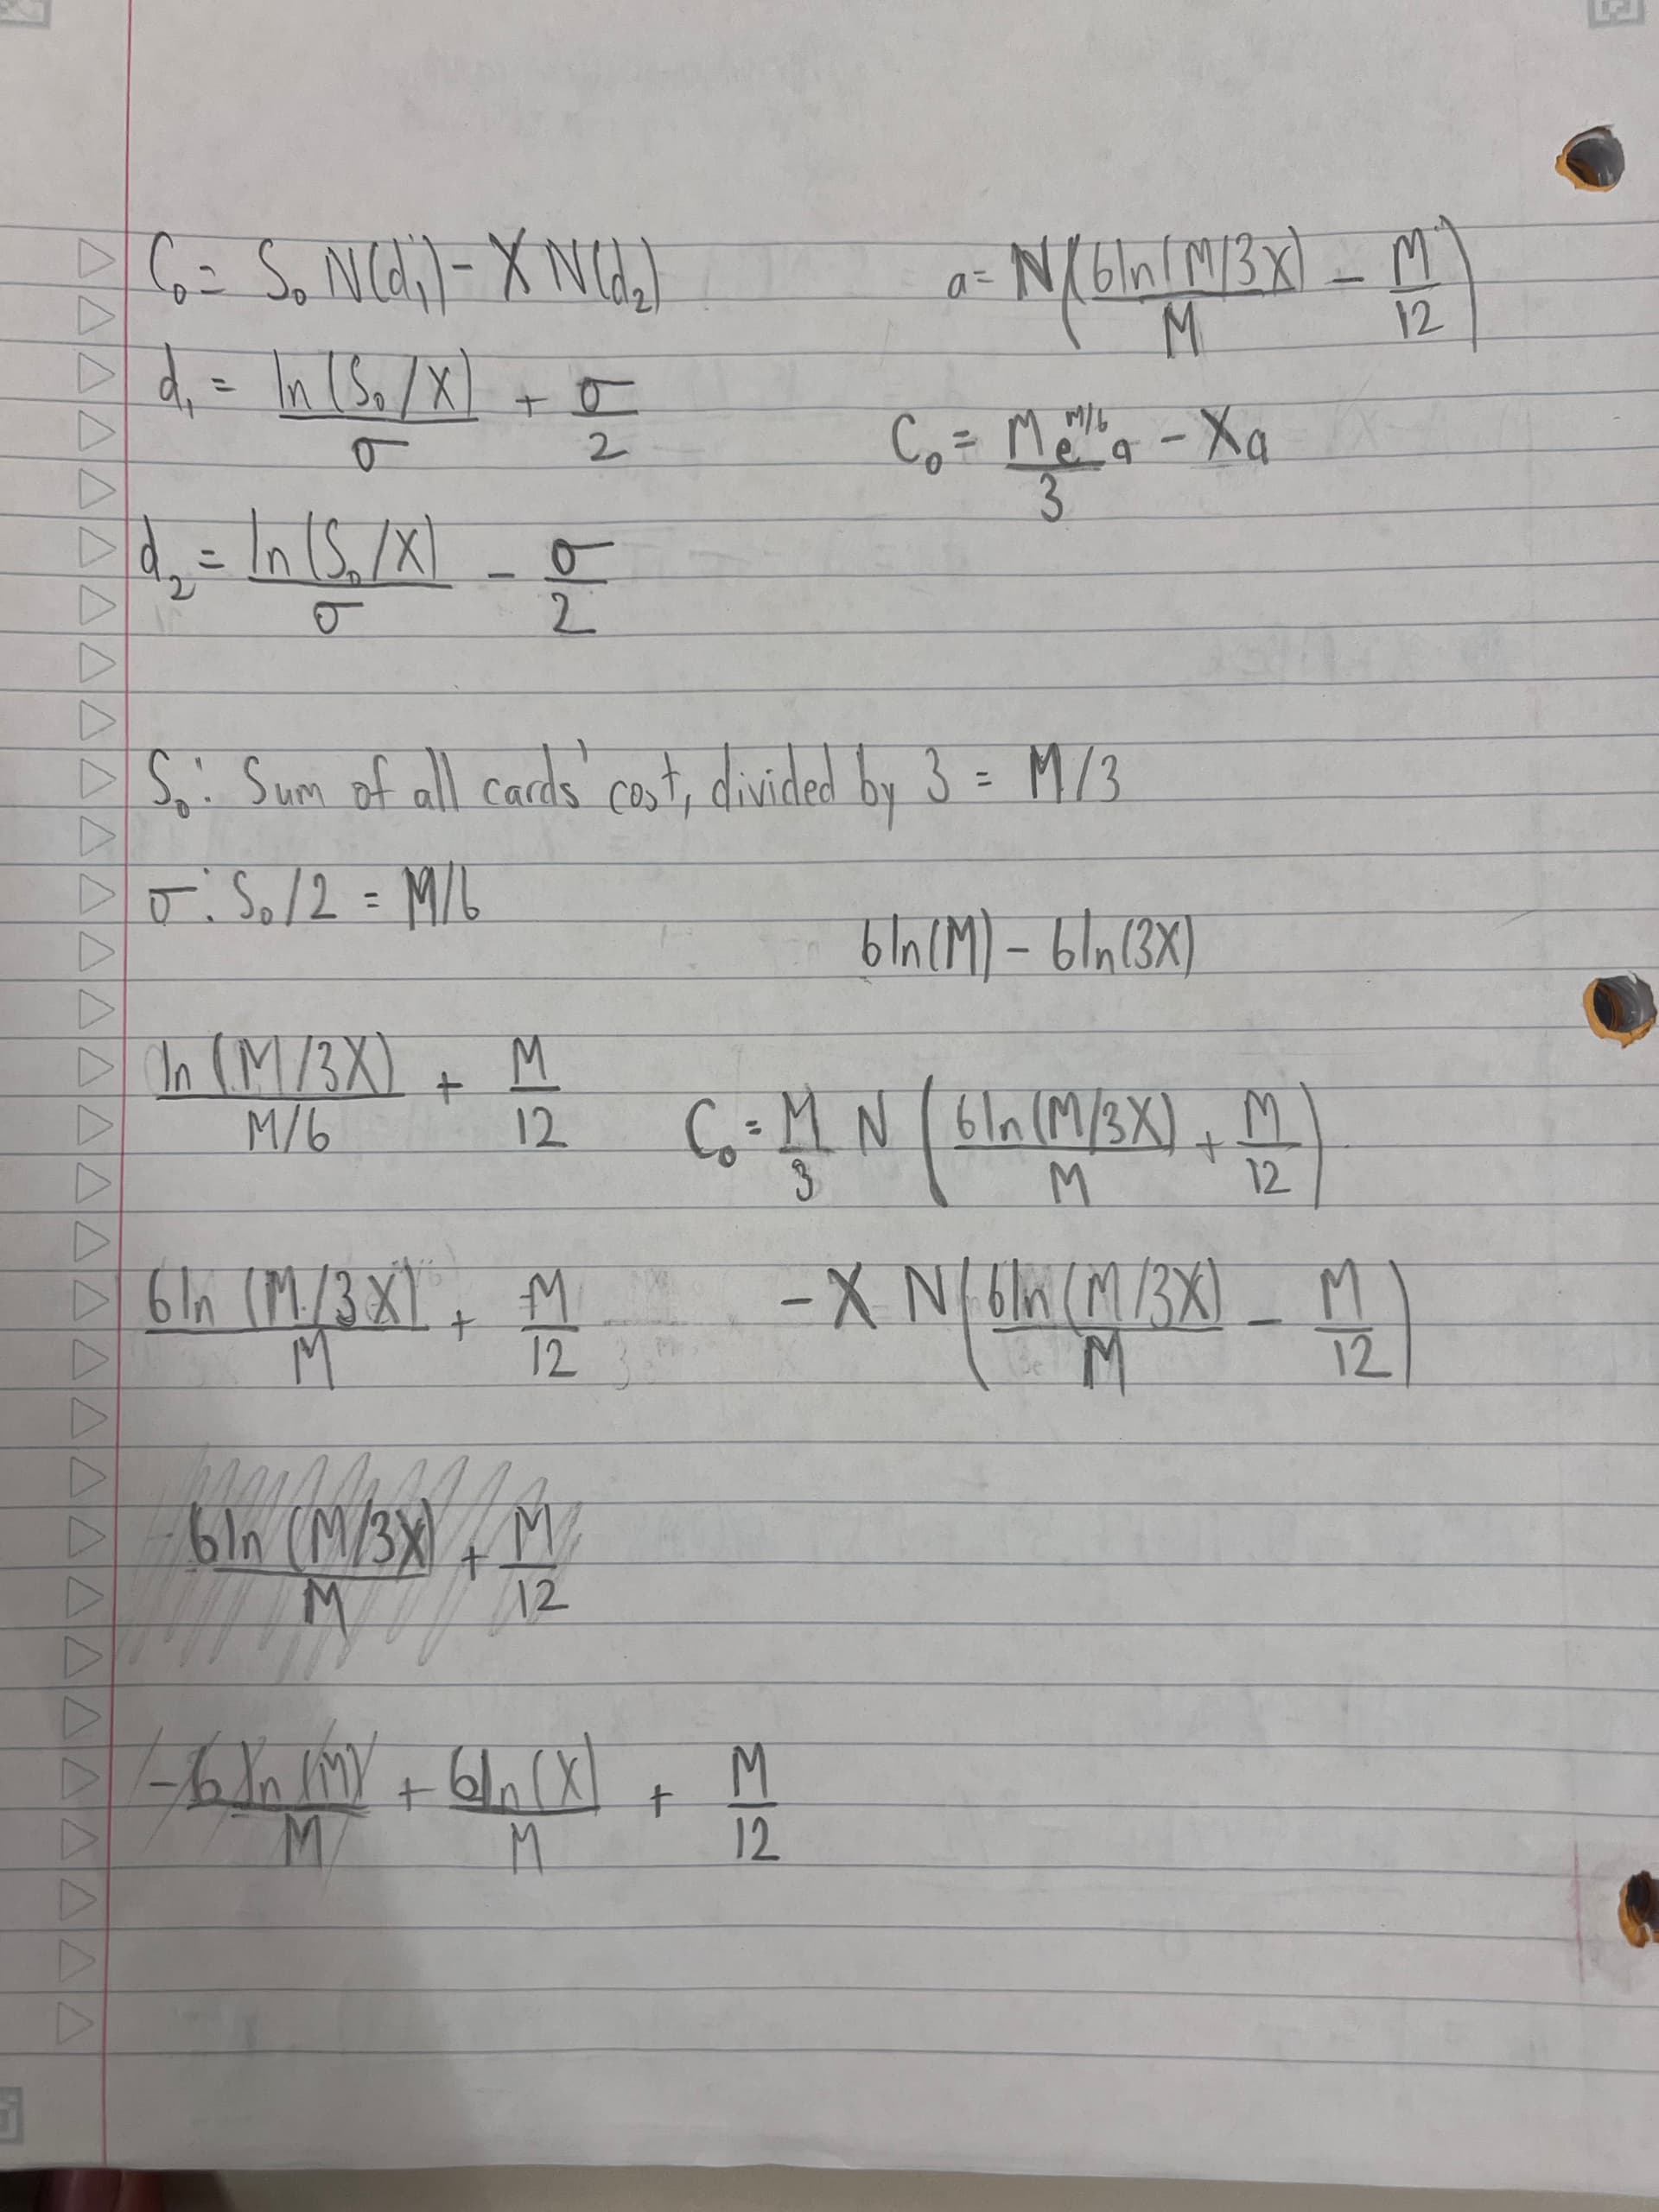 C₀ = S₀ N(d₁) - X N(d₂)
d₁ = ln(S₀/X)/σ + σ/2
d₂ = ln(S₀/X)/σ - σ/2
a = N(6ln(M/3X)/M - M/12)
C₀ = Me^(M/6)a/3 - Xa
S₀: Sum of all cards' cost, divided by 3 = M/3
σ: S₀/2 = M/6
6ln(M) - 6ln(3X)
ln(M/3X)/(M/6) + M/12
C₀ = M/3 N(6ln(M/3X)/M + M/12)
6ln(M/3X)/M + M/12
- X N(6ln(M/3X)/M - M/12)
6ln(M/3X)/M + M/12
-6ln(M)/M + 6ln(X)/M + M/12